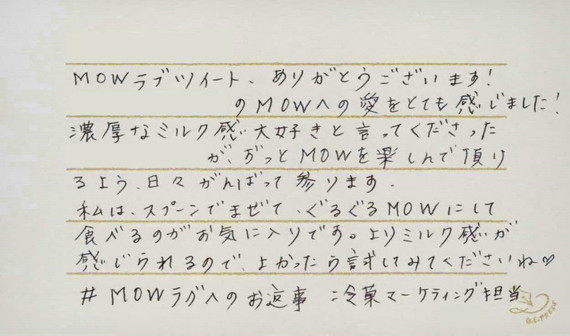 MOWラブツイート、ありがとうございます!
のMOWへの愛をとても感じました!
濃厚なミルク感大好きと言ってくださった
が、ずっとMOWを楽しんで頂け
るよう、日々がんばって参ります。
私は、スプーンでまぜて、ぐるぐるMOWにして
食べるのがお気に入りです。よりミルク感が
感じられるので、よかったら試してみてくださいね♡
#MOWラブへのお返事 冷菓マーケティング担当